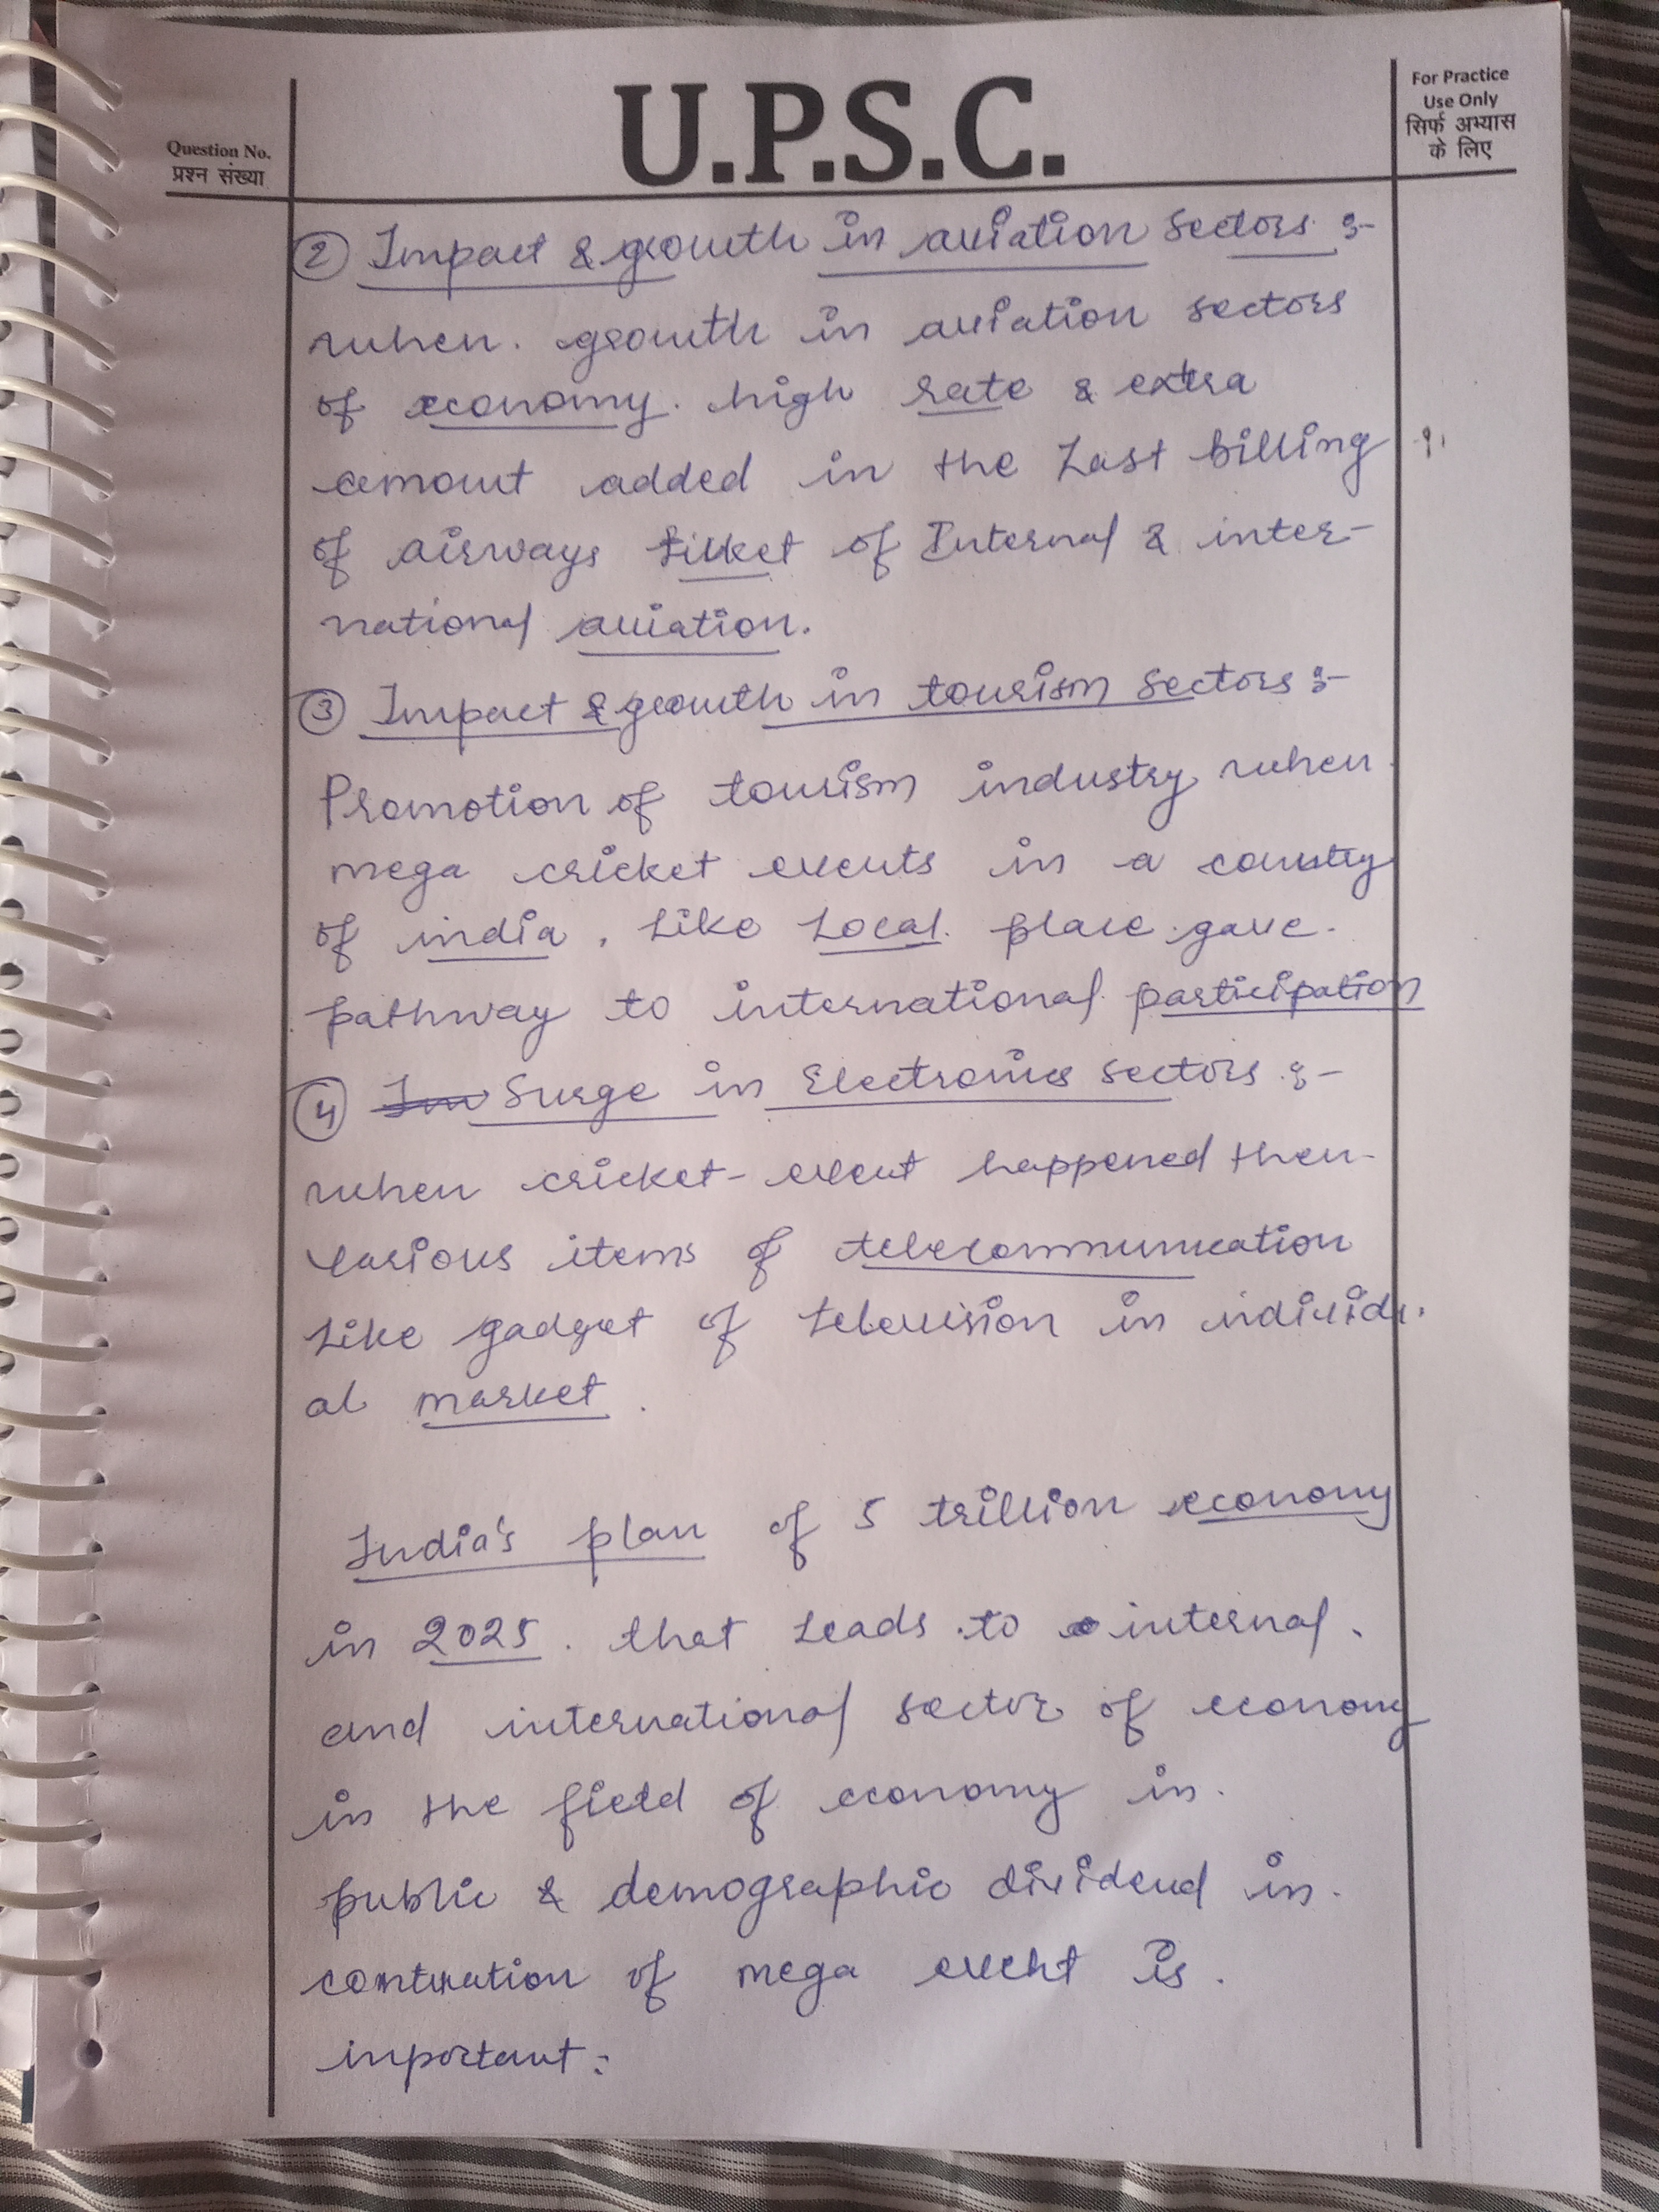 For Practice
Use Only
सिर्फ अभ्यास
के लिए
U.P.S.C.
Question No.
प्रश्न संख्या
② Impact & growth in aviation sectors :-
when. growth in aviation sectors
of economy. high rate & extra
amount added in the Last billing
of airways ticket of Internal & inter-
national aviation.
③ Impact & growth in tourism sectors :-
Promotion of tourism industry when
mega cricket events in a country
of india, Like Local. place gave.
pathway to international participation
④ Surge in Electronics sectors :-
when cricket-event happened then
various items of telecommunication
Like gadget of television in individu.
al market.
India's plan of 5 trillion economy
in 2025. that Leads to internal.
and international sector of economy
in the field of economy in.
public & demographic dividend in.
of mega event is.
inportant: